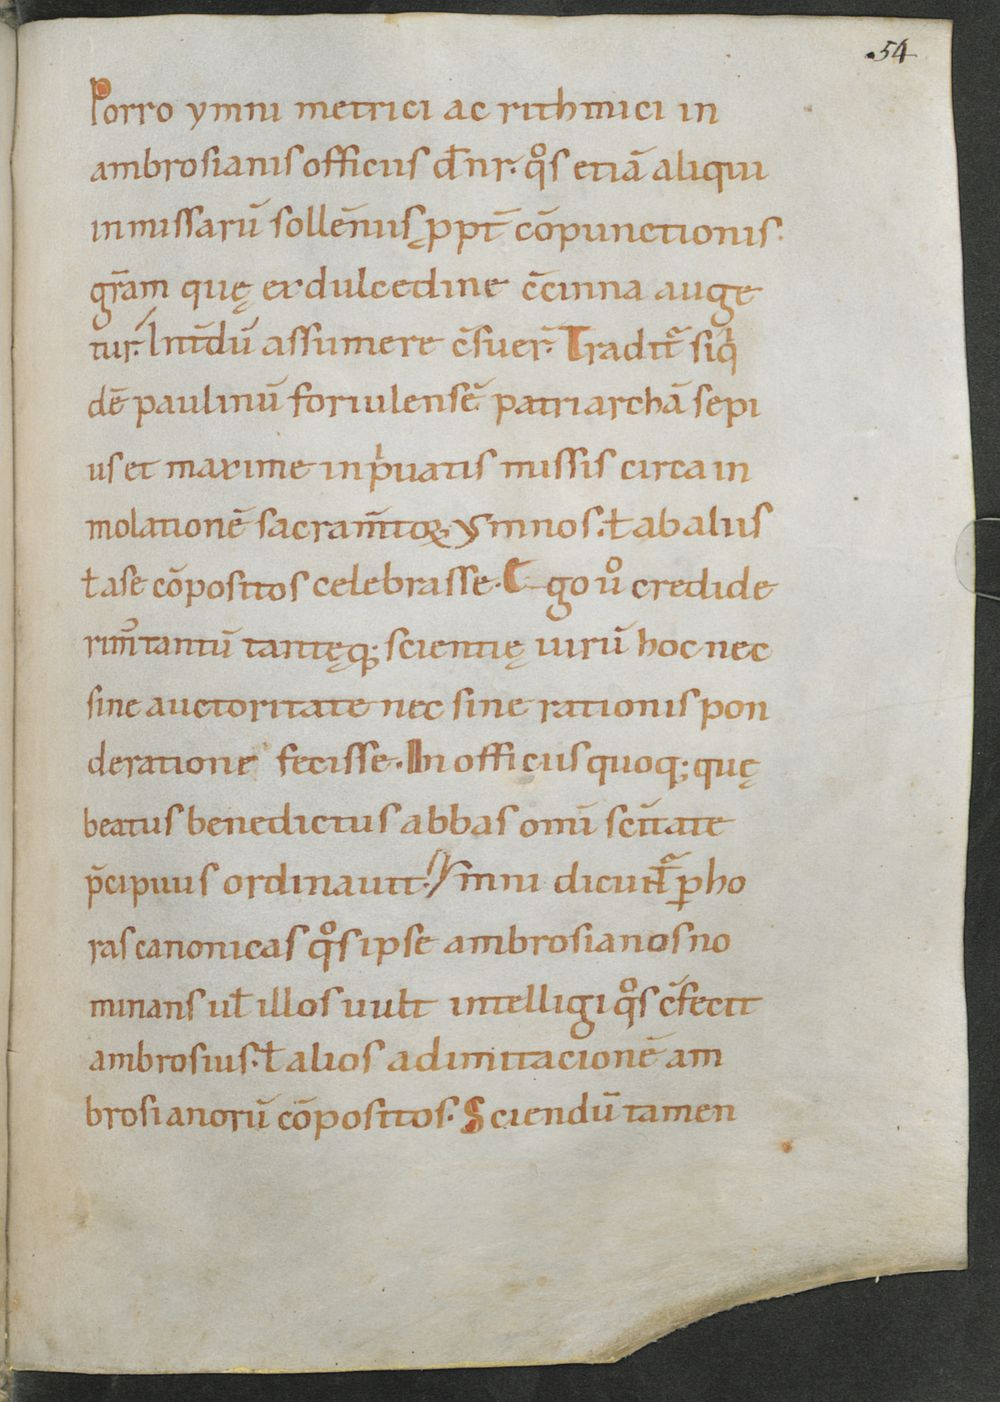 54
Porro ymni metrici ac rithmici in
ambrosianis officiis dn̄r. qͦs etiā aliqui
in missarū sollēniis ꝓpt̄ cōpunctionis
gr̄am quę ex dulcedine c̄cinna auge
tur. Int̄dū assumere c̄suer̄. Tradit᷑ siqͥ
dē paulinū foriulensē patriarchā sepi
us et maxime in pͥuatis missis circa in
molationē sacram̄toꝝ ymnos. ł ab aliis
ł a se cōpositos celebrasse. Ego uͦ credide
rim̄ tantū tantęq; scientię uirū hoc nec
sine auctoritate nec sine rationis pon
deratione fecisse. In officiis quoq; quę
beatus benedictus abbas omī sc̄itate
p̄cipuus ordinauit. Ymni dicunt᷑ ꝑ ho
ras canonicas qͦs ipse ambrosianos no
minans uł illos uult intelligi qͦs c̄fecit
ambrosius. ł alios ad imitacionē am
brosianorū cōpositos. Sciendū tamen